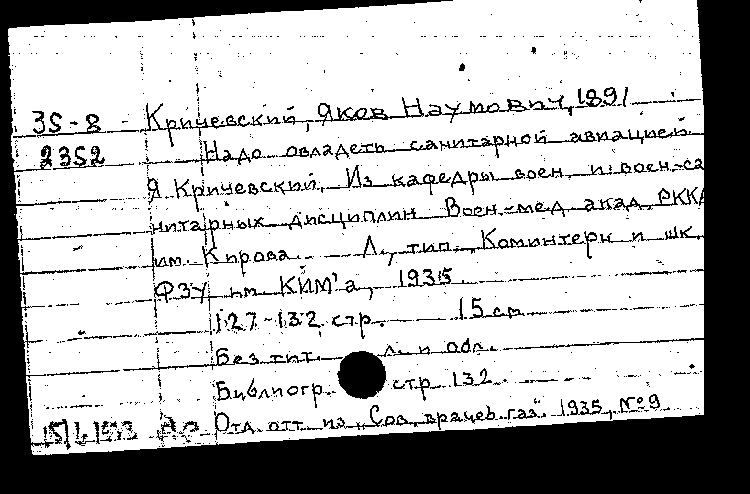 35-8 Кричевский, Яков Наумович, 1891
2352 Надо овладеть санитарной авиацией
Я. Кричевский. Из кафедры воен. и воен-са
нитарных дисциплин Воен.-мед акад. РККА
им. Кирова. Л., тип. Коминтерн и шк.
ФЗУ им КИМ'а, 1935.
127-132 стр. 15 см
Без тит. л. и обл.
Библиогр. стр. 132.
Отд. отт. из „Сов. врачеб. газ". 1935, №9